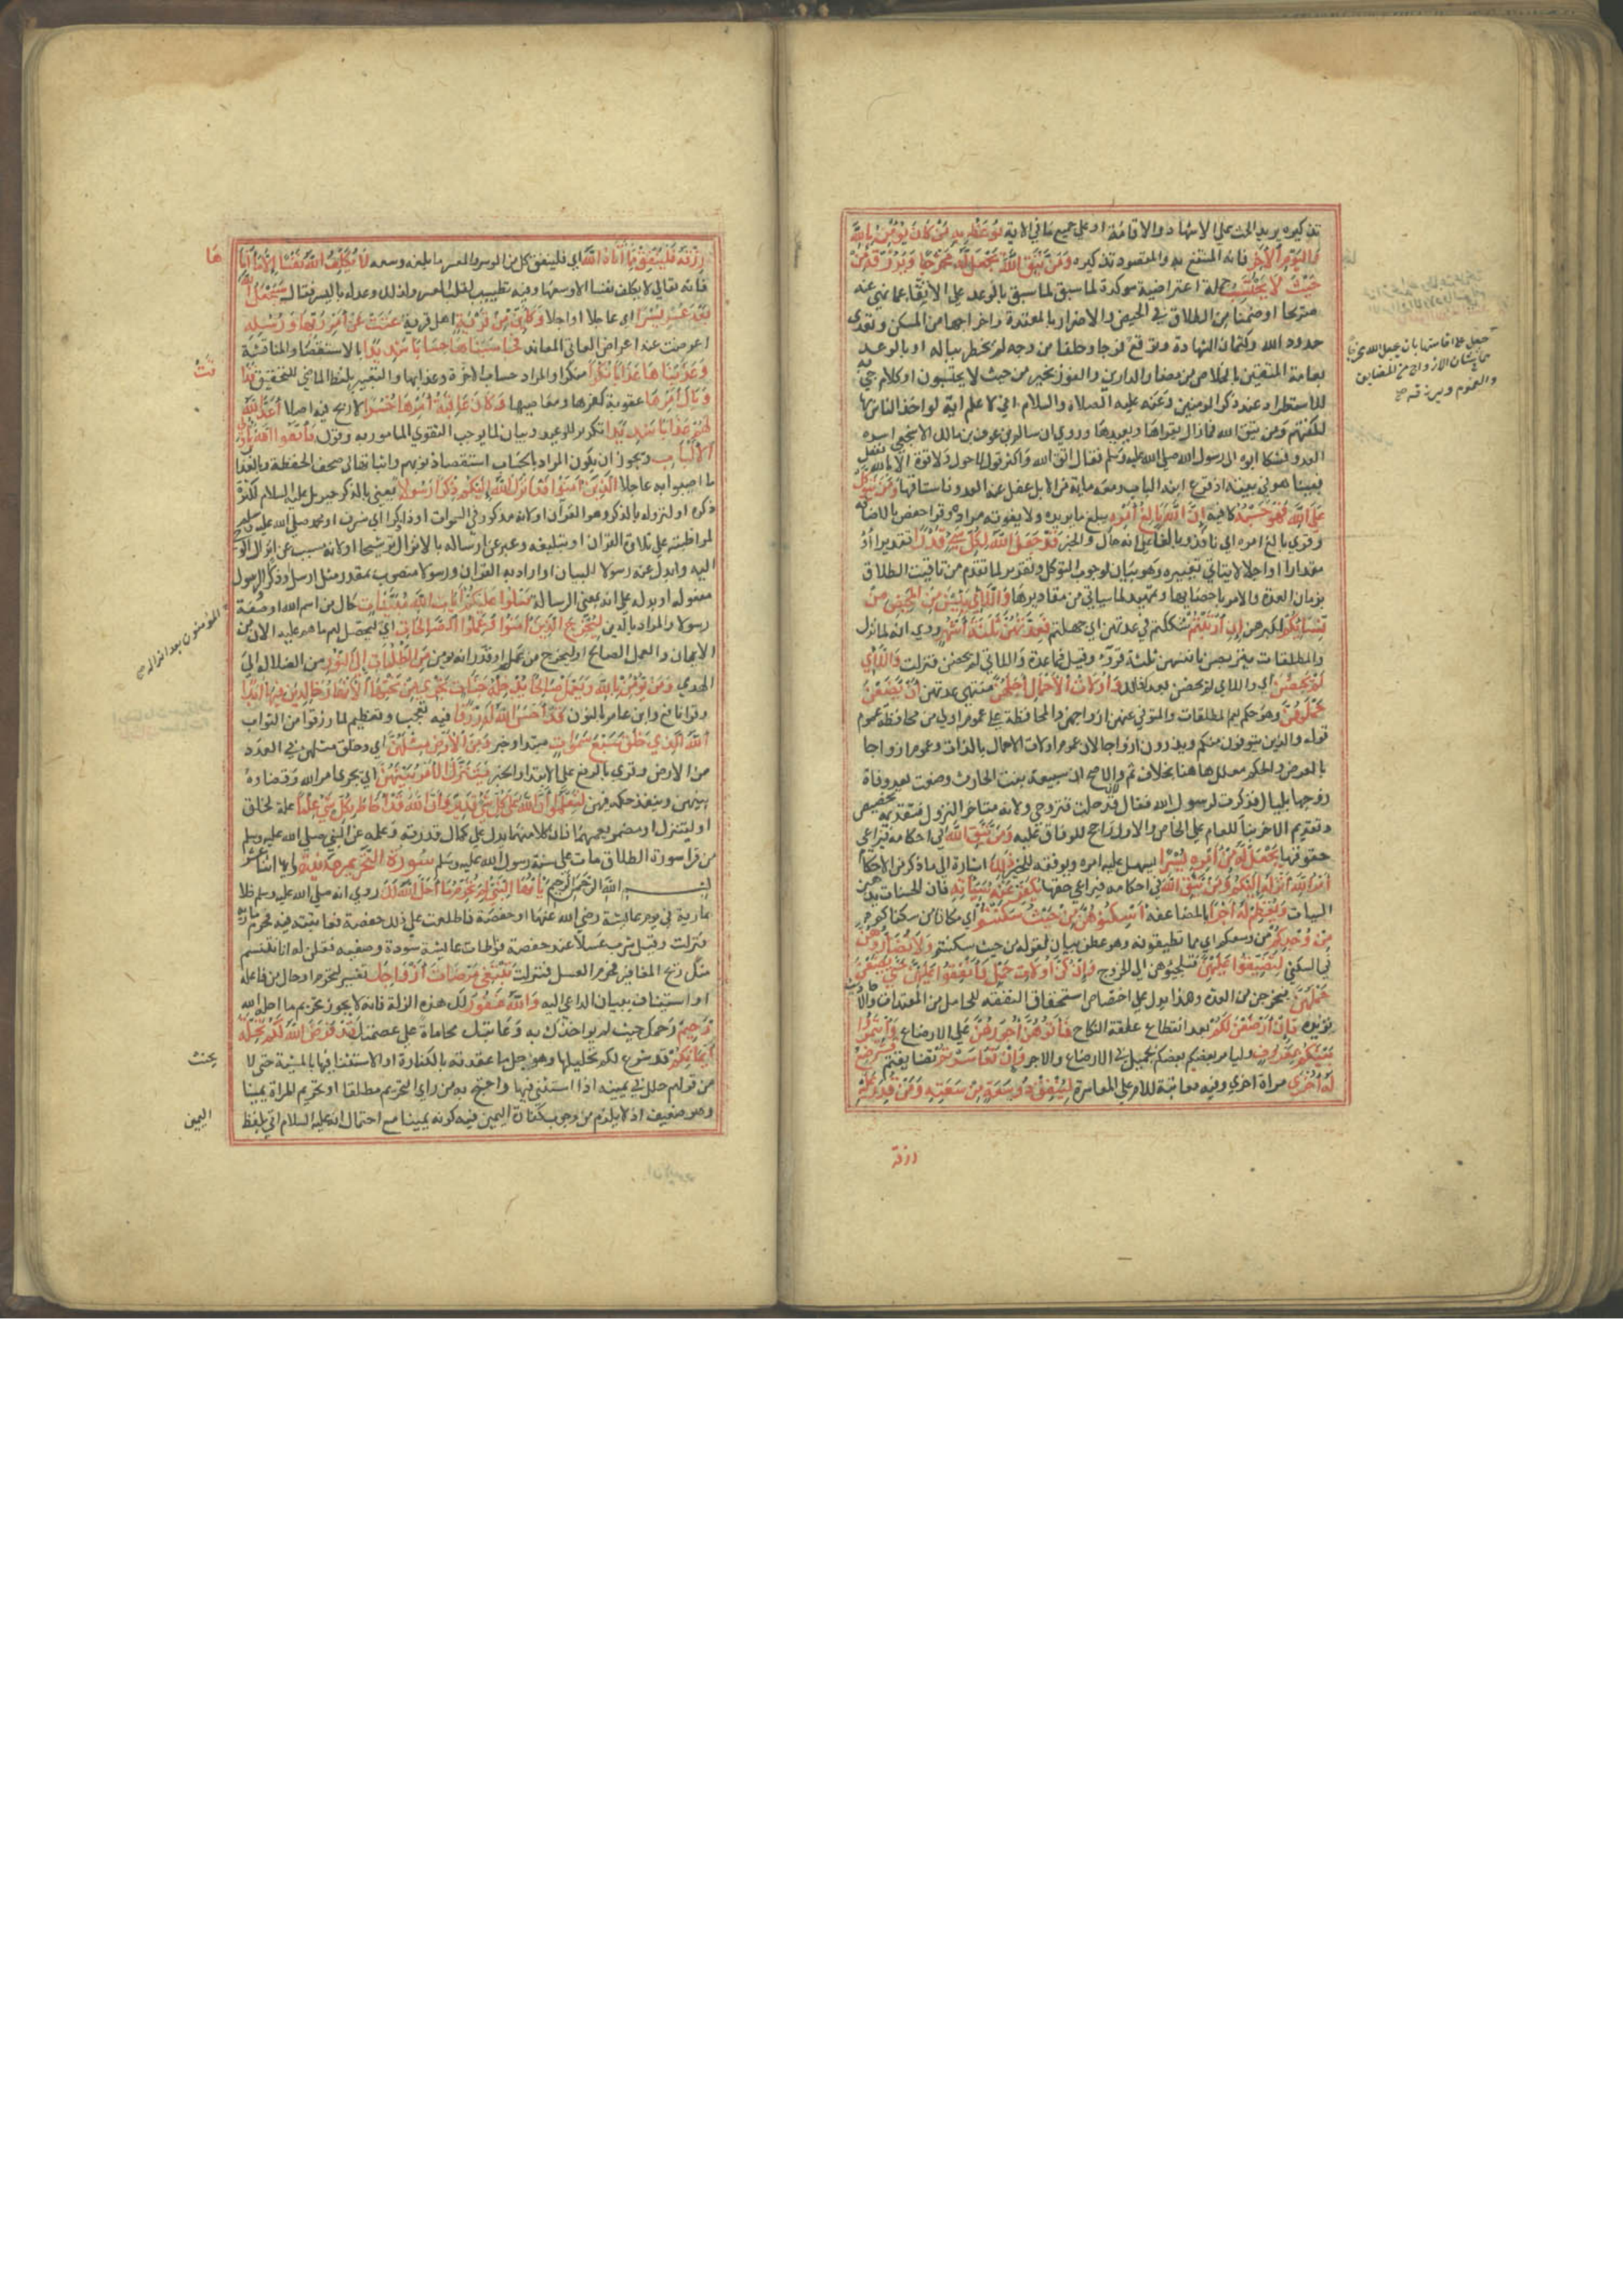 تذكيره يريد الحث على الاشهاد والاقامة او على جميع ما في الاية يُوعَظُ بِهِ مَنْ كَانَ يُؤْمِنُ بِاللَّهِ
وَاليَوْمِ الْآخِرِ فانه المنتفع به والمقصود تذكيره وَمَنْ يَتَّقِ اللَّهَ يَجْعَلْ لَهُ مَخْرَجًا وَيَرْزُقْهُ مِنْ
حَيْثُ لَا يَحْتَسِبُ جملة اعتراضية موكدة لما سبق بالوعد على الاتقاء عما نهى عنه
صريحا او ضمنا من الطلاق في الحيض والاضرار بالمعتدة واخراجها من المسكن وتعدى
حدود الله وكتمان الشهادة وتوقع فرجا وخلفا من وجه لم يخطر بباله او بالوعد
لعامة المتقين بالخلاص من مضار الدارين والفوز بخير من حيث لا يحتسبون او كلام جئ به
للاستطراد عند ذكر المومنين وعنه عليه الصلاة والسلام اني لاعلم اية لو اخذ الناس بها
لكفتهم ومن يتق الله فما زال يقراها ويعيدها وروي ان سالم بن عوف بن مالك الاشجعي اسره
العدو فشكا ابوه الى رسول الله صلى الله عليه وسلم فقال اتق الله واكثر قول لا حول ولا قوة الا بالله ففعل
فبينا هو في بيته اذ قرع ابنه الباب ومعه ماية من الابل غفل عنه العدو فاستاقها وَمَنْ يَتَوَكَّلْ
عَلَى اللَّهِ فَهُوَ حَسْبُهُ كافيه إِنَّ اللَّهَ بَالِغُ أَمْرِهِ يبلغ ما يريده ولا يفوته مراد وقرا حفص بالاضافة
وقري بالغ امره اي نافذ وبالغا على انه حال والخبر قَدْ جَعَلَ اللَّهُ لِكُلِّ شَيْءٍ قَدْرًا تقديرا او
مقدارا او اجلا لا يتاتى تغييره وهو بيان لوجوب التوكل وتقرير لما تقدم من تاقيت الطلاق
بزمان العدة والامر باحصايها وتمهيد لما سياتي من مقاديرها وَاللَّائِي يَئِسْنَ مِنَ الْمَحِيضِ مِنْ
نِسَائِكُمْ لكبرهن إِنِ ارْتَبْتُمْ شككتم في عدتهن اي جهلتم فَعِدَّتُهُنَّ ثَلٰثَةُ أَشْهُرٍ روي انه لما نزل
والمطلقات يتربصن بانفسهن ثلثة قروء وقيل فما عدة واللاتي لم يحضن فنزلت وَاللَّائِي
لَمْ يَحِضْنَ اي واللاي لم يحضن بعد كذلك وَأُولَاتُ الْأَحْمَالِ أَجَلُهُنَّ منتهى عدتهن أَنْ يَضَعْنَ
حَمْلَهُنَّ وهو حكم يعم المطلقات والمتوفى عنهن ازواجهن والمحافظة على عمومه اولى من محافظة عموم
قوله والذين يتوفون منكم ويذرون ازواجا لان عموم اولات الاحمال بالذات وعموم ازواجا
بالعرض والحكم معلل ههنا بخلاف ثم ولانه صح ان سبيعة بنت الحارث وضعت بعد وفاة
زوجها بليال فذكرت لرسول الله فقال قد حللت فتزوجي ولانه متاخر النزول فتقديمه تخصيص
وتقديم الاخر بناء للعام على الخاص والاول راجح للوفاق عليه وَمَنْ يَتَّقِ اللَّهَ في احكامه فيراعي
حقوقها يَجْعَلْ لَهُ مِنْ أَمْرِهِ يُسْرًا يسهل عليه امره ويوفقه للخير ذَلِكَ اشارة الى ما ذكر من الاحكام
أَمْرُ اللَّهِ أَنْزَلَهُ إِلَيْكُمْ وَمَنْ يَتَّقِ اللَّهَ في احكامه فيراعي حقها يُكَفِّرْ عَنْهُ سَيِّئَاتِهِ فان الحسنات يذهبن
السيات وَيُعْظِمْ لَهُ أَجْرًا بالمضاعفة أَسْكِنُوهُنَّ مِنْ حَيْثُ سَكَنْتُمْ اي مكانا من سكناكم
مِنْ وُجْدِكُمْ من وسعكم اي مما تطيقونه وهو عطف بيان لقوله من حيث سكنتم وَلَا تُضَارُّوهُنَّ
في السكنى لِتُضَيِّقُوا عَلَيْهِنَّ فتلجئوهن الى الخروج وَإِنْ كُنَّ أُولَاتِ حَمْلٍ فَأَنْفِقُوا عَلَيْهِنَّ حَتَّى يَضَعْنَ
حَمْلَهُنَّ فيخرجن من العدة وهذا يدل على اختصاص استحقاق النفقة للحامل من المعتدات والاحاديث
تؤيده فَإِنْ أَرْضَعْنَ لَكُمْ بعد انقطاع علقة النكاح فَآتُوهُنَّ أُجُورَهُنَّ على الارضاع وَأْتَمِرُوا
بَيْنَكُمْ بِمَعْرُوفٍ وليامر بعضكم بعضكم بجميل في الارضاع والاجر وَإِنْ تَعَاسَرْتُمْ تضايقتم فَسَتُرْضِعُ
لَهُ أُخْرَى مراة اخرى وفيه معاتبة للام على المعاسرة لِيُنْفِقْ ذُو سَعَةٍ مِنْ سَعَتِهِ وَمَنْ قُدِرَ عَلَيْهِ
رزقه
رِزْقُهُ فَلْيُنْفِقْ مِمَّا آتَاهُ اللَّهُ اي فلينفق كل من الموسر والمعسر ما بلغه وسعه لَا يُكَلِّفُ اللَّهُ نَفْسًا إِلَّا مَا آتَاهَا
فانه تعالى لا يكلف نفسا الا وسعها وفيه تطييب لقلب المعسر ولذلك وعد له باليسر فقال سَيَجْعَلُ اللَّهُ
بَعْدَ عُسْرٍ يُسْرًا اي عاجلا او اجلا وَكَأَيِّنْ مِنْ قَرْيَةٍ اهل قرية عَتَتْ عَنْ أَمْرِ رَبِّهَا وَرُسُلِهِ
اعرضت عنه اعراض العاتي المعاند فَحَاسَبْنَاهَا حِسَابًا شَدِيدًا بالاستقصا والمناقشة
وَعَذَّبْنَاهَا عَذَابًا نُكْرًا منكرا والمراد حساب الاخرة وعذابها والتعبير بلفظ الماضي للتحقيق فَذَاقَتْ
وَبَالَ أَمْرِهَا عقوبة كفرها ومعاصيها وَكَانَ عَاقِبَةُ أَمْرِهَا خُسْرًا لا ربح فيه اصلا أَعَدَّ اللَّهُ
لَهُمْ عَذَابًا شَدِيدًا تكرير للوعيد وبيان لما يوجب التقوى المامور به وقوله فَاتَّقُوا اللَّهَ يَا أُولِي
الْأَلْبَابِ ويجوز ان يكون المراد بالحساب استقصا ذنوبهم واثباتها في صحف الحفظة وبالعذاب
ما اصيبوا به عاجلا الَّذِينَ آمَنُوا قَدْ أَنْزَلَ اللَّهُ إِلَيْكُمْ ذِكْرًا رَسُولًا يعني بالذكر جبريل عليه السلام لكثرة
ذكره او لنزوله بالذكر وهو القران او لانه مذكور في السموات او ذا ذكر اي شرف او محمد صلى الله عليه وسلم
لمواظبته على تلاوة القران او تبليغه وعبر عن ارساله بالانزال ترشيحا او لانه مسبب عن انزال الوحي
اليه وابدل عنه رسولا للبيان او اراد به القران ورسولا منصوب بمقدر مثل ارسل او ذكرا والرسول
مفعوله او بدله على انه بمعنى الرسالة يَتْلُوا عَلَيْكُمْ آيَاتِ اللَّهِ مُبَيِّنَاتٍ حال من اسم الله او صفة
رسولا والمراد بالذين لِيُخْرِجَ الَّذِينَ آمَنُوا وَعَمِلُوا الصَّالِحَاتِ اي ليحصل لهم ما هم عليه الان من
الايمان والعمل الصالح او ليخرج من علم او قدر انه يومن مِنَ الظُّلُمَاتِ إِلَى النُّورِ من الضلالة الى
الهدى وَمَنْ يُؤْمِنْ بِاللَّهِ وَيَعْمَلْ صَالِحًا يُدْخِلْهُ جَنَّاتٍ تَجْرِي مِنْ تَحْتِهَا الْأَنْهَارُ خَالِدِينَ فِيهَا أَبَدًا
وقرا نافع وابن عامر بالنون قَدْ أَحْسَنَ اللَّهُ لَهُ رِزْقًا فيه تعجيب وتعظيم لما رزقوا من الثواب
اللَّهُ الَّذِي خَلَقَ سَبْعَ سَمٰوَاتٍ مبتدا وخبر وَمِنَ الْأَرْضِ مِثْلَهُنَّ اي وخلق مثلهن في العدد
من الارض وقري بالرفع على الابتدا والخبر يَتَنَزَّلُ الْأَمْرُ بَيْنَهُنَّ اي يجري امر الله وقضاوه
بينهن وينفذ حكمه فيهن لِتَعْلَمُوا أَنَّ اللَّهَ عَلَى كُلِّ شَيْءٍ قَدِيرٌ وَأَنَّ اللَّهَ قَدْ أَحَاطَ بِكُلِّ شَيْءٍ عِلْمًا علة لخلق
او ليتنزل او مضمر يعمهما فان كلا منهما يدل على كمال قدرته وعلمه عن النبي صلى الله عليه وسلم
من قرا سورة الطلاق مات على سنة رسول الله عليه وسلم سورة التحريم مدنية وايها اثنا عشر
بسم الله الرحمن الرحيم يَا أَيُّهَا النَّبِيُّ لِمَ تُحَرِّمُ مَا أَحَلَّ اللَّهُ لَكَ روي انه صلى الله عليه وسلم خلا
بمارية في يوم عائشة رضي الله عنها او حفصة فاطلعت على ذلك حفصة فعاتبته فيه فحرم مارية
فنزلت وقيل شرب عسلا عند حفصة فواطات عائشة سودة وصفيه فقلن له انا نشم
منك ريح المغافير فحرم العسل فنزلت تَبْتَغِي مَرْضَاتَ أَزْوَاجِكَ تفسير لتحرم او حال من فاعله
او استيناف ببيان الداعي اليه وَاللَّهُ غَفُورٌ لك هذه الزلة فانه لا يجوز تحريم ما احل الله
رَحِيمٌ رحمك حيث لم يواخذك به وعاتبك محاماة على عصمتك قَدْ فَرَضَ اللَّهُ لَكُمْ تَحِلَّةَ
أَيْمَانِكُمْ قد شرع لكم تحليلها وهو حل ما عقدته بالكفارة او الاستثنا فيها بالمشية حتى لا يحنث
من قولهم حلل في يمينه اذا استثنى فيها واحتج به من راى التحريم مطلقا او تحريم المراة يمينا
وهو ضعيف اذ لا يلزم من وجوب كفارة اليمين فيه كونه يمينا مع احتمال انه عليه السلام اتى بلفظ
اليمين
المؤمنون بعد انزاله صح